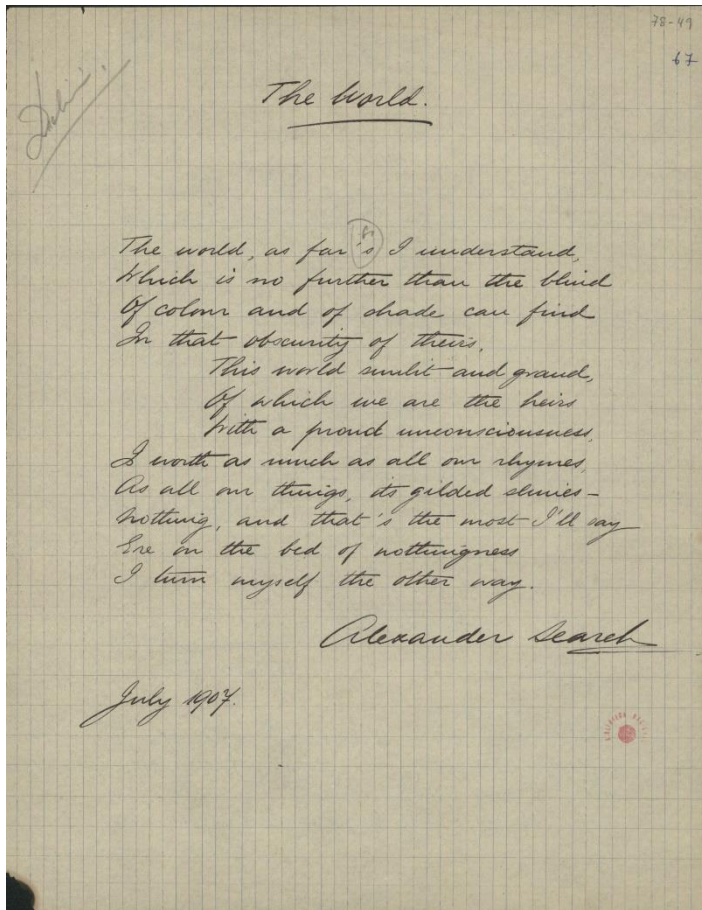 78-49
67
The World.
The world, as far 's I understand,
as
Which is no further than the blind
Of colour and of shade can find
In that obscurity of theirs,
This world sunlit and grand,
Of which we are the heirs
With a proud unconsciousness,
Is worth as much as all our rhymes,
As all our things, its gilded slimes –
Nothing, and that's the most I'll say
Ere on the bed of nothingness
I turn myself the other way.
Alexander Search
July 1907.